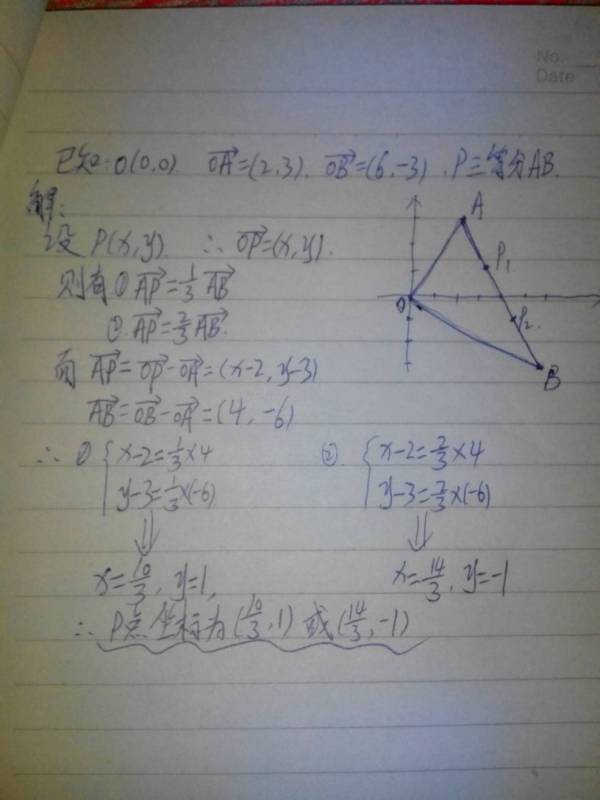 No.
Date
已知:O(0,0) OA→=(2,3), OB→=(6,-3), P三等分AB.
解:
设 P(x,y) ∴ OP→=(x,y).
则有① AP→=1/3 AB→
②. AP→=2/3 AB→.
而 AP→=OP→-OA→=(x-2, y-3)
AB→=OB→-OA→=(4, -6)
∴ ① { x-2=1/3×4
y-3=1/3×(-6)
⇓
x=10/3, y=1,
② { x-2=2/3×4
y-3=2/3×(-6)
⇓
x=14/3, y=-1
∴ P点坐标为(10/3,1) 或(14/3,-1)
A
P1
O
P2
B